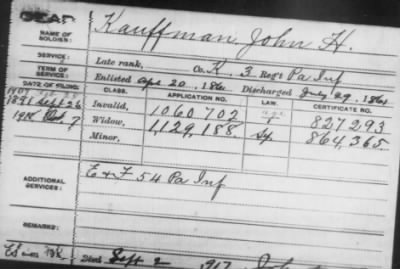 DEAD
NAME OF SOLDIER: Kauffman, John H.
SERVICE: Late rank, Co. K, 3 Reg't Pa Inf
TERM OF SERVICE: Enlisted Apr 20, 1861 Discharged July 29, 1861
DATE OF FILING: CLASS. APPLICATION NO. LAW. CERTIFICATE NO.
1891 Sept 26 Invalid, 1060702 827293
Oct 7 Widow, 1,129,188 Sp. 864,365
Minor,
ADDITIONAL SERVICES: E & F 54 Pa Inf
REMARKS:
Died Sept 2 1917